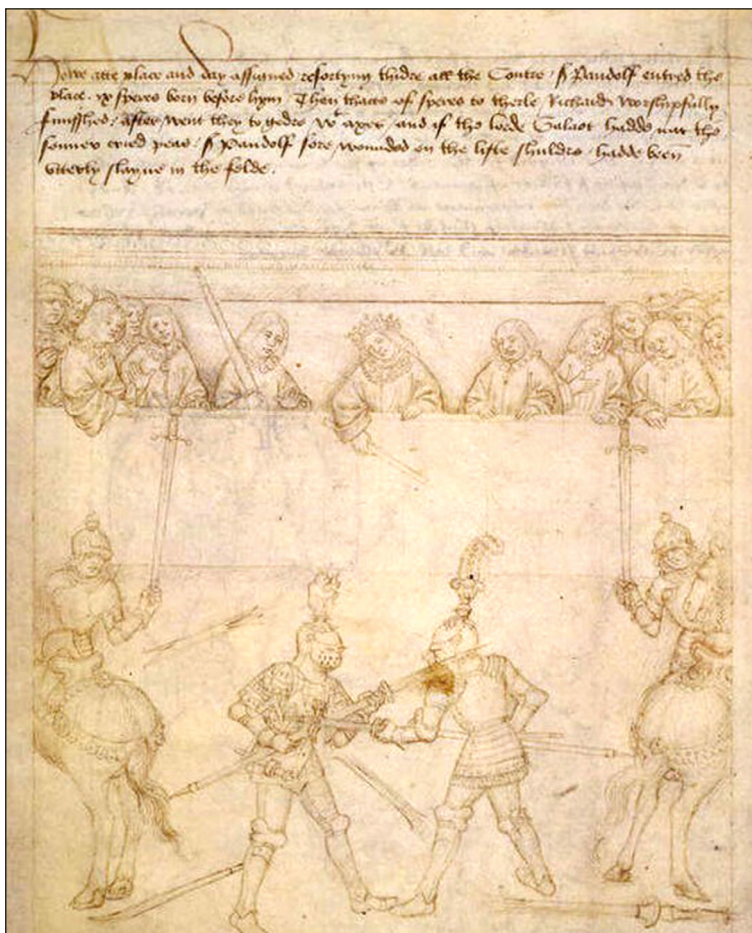 Howe atte place and day assigned resortyng thidre all the Contre. Sr Pandolf entred the
place. ix speres born before hym. Then thactes of speres to therle Richard worshipfully
fynisshed. after went they to gedre wt axes. and if the lorde Galaot hadde not the
sonner cried peas. Sr Pandolf sore wounded on the lifte shuldre. hadde been
vtterly slayne in the felde.